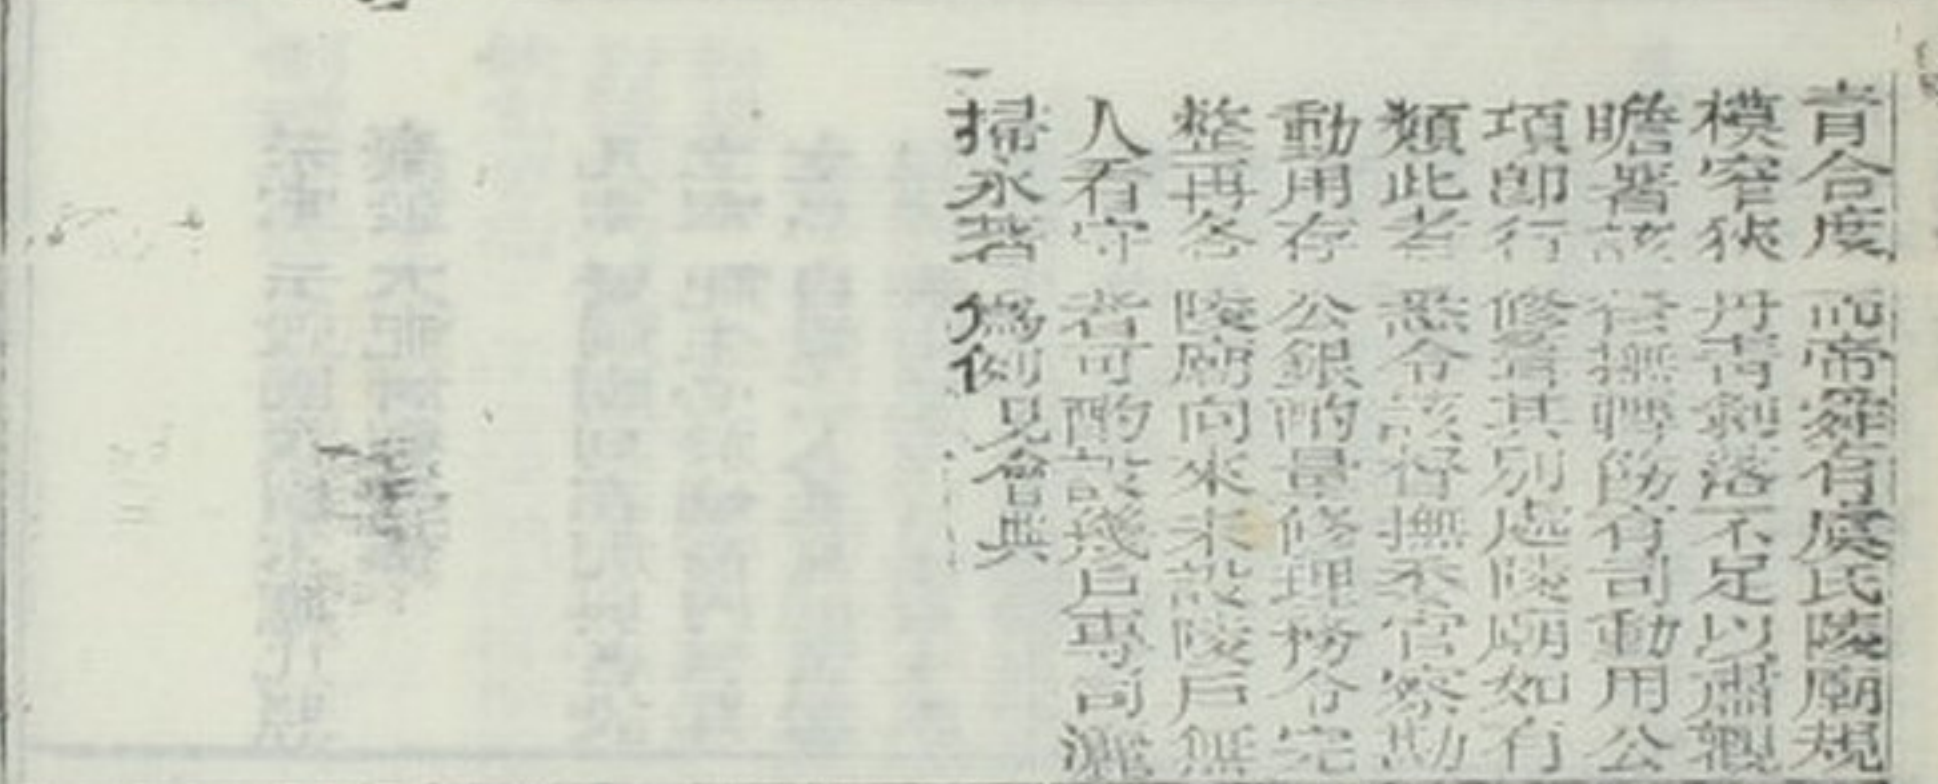 青合度而帝舜有虞氏陵廟規
模窄狹丹青剝落不足以肅觀
瞻著該督撫轉飭有司動用公
項卽行修葺其別處陵廟如有
類此者悉令該督撫委官察勘
動用存公銀酌量修理務令完
整再各陵廟向來未設陵戶無
人看守者可酌設幾戶專司灑
掃永著爲例見會典